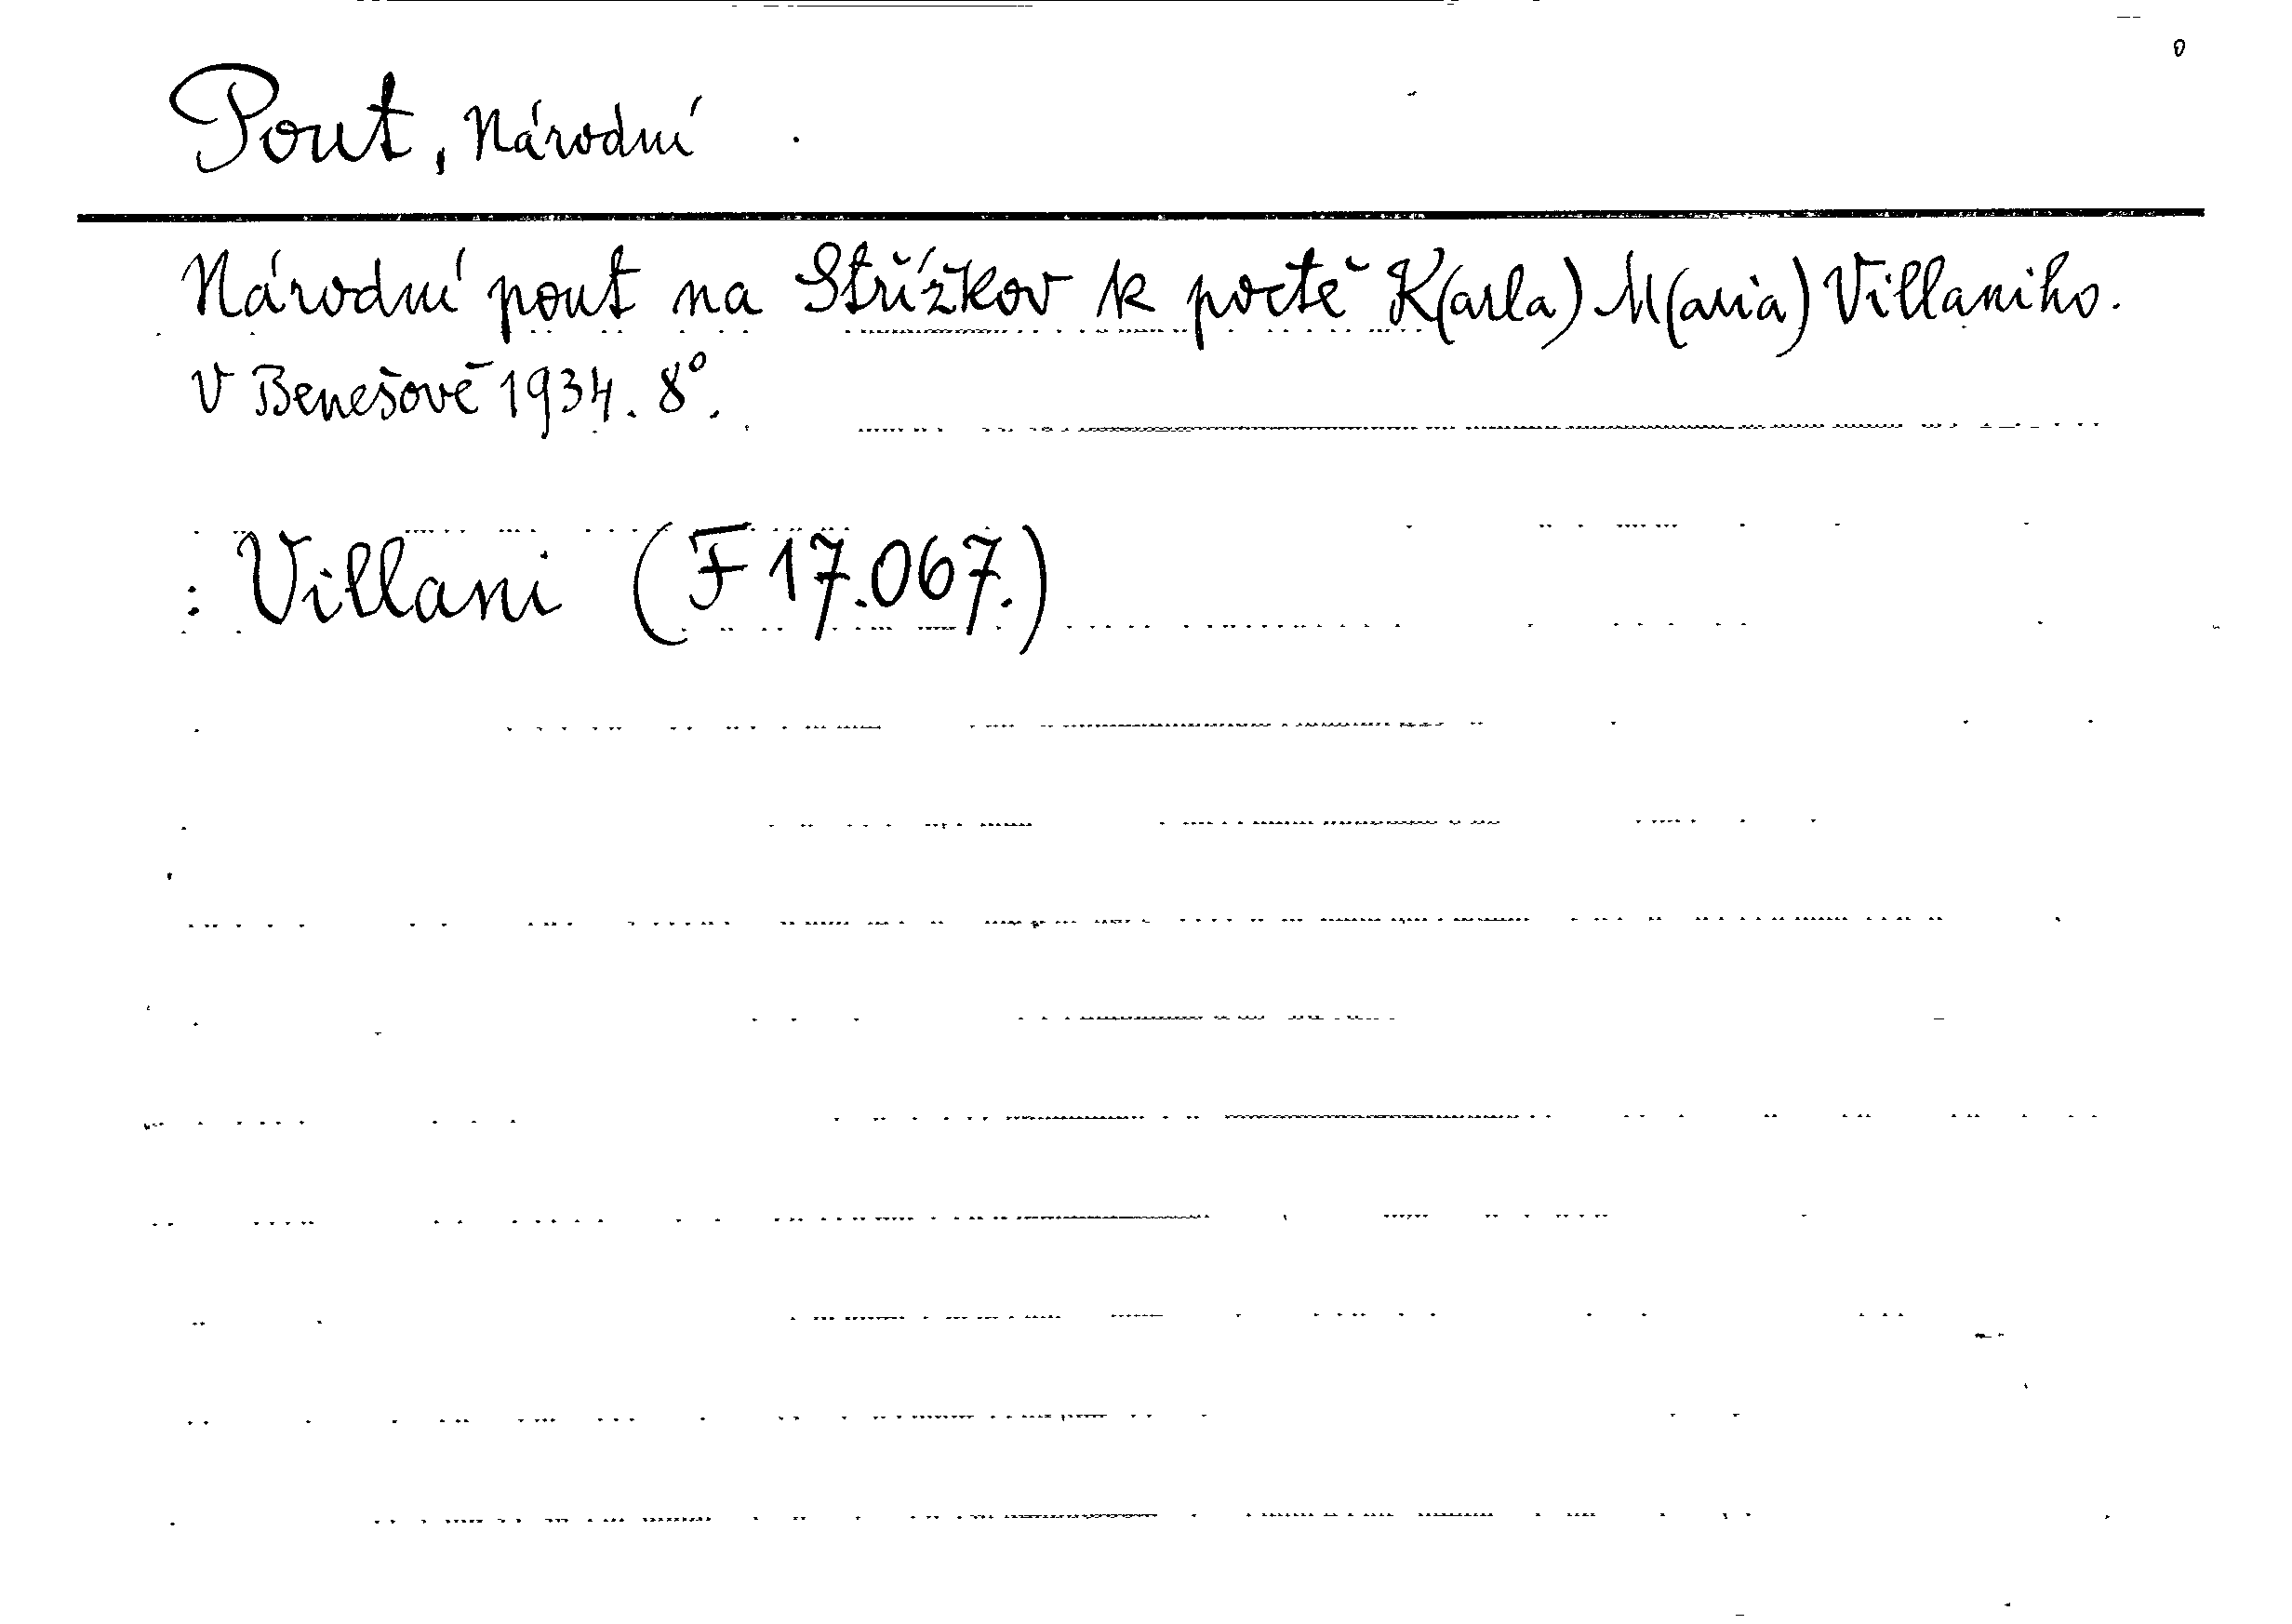 Pout, Národní
Národní pout na Střížkov k poctě K(arla) M(aria) Villaniho.
V Benešově 1934. 8°.
: Villani (F 17.067.)